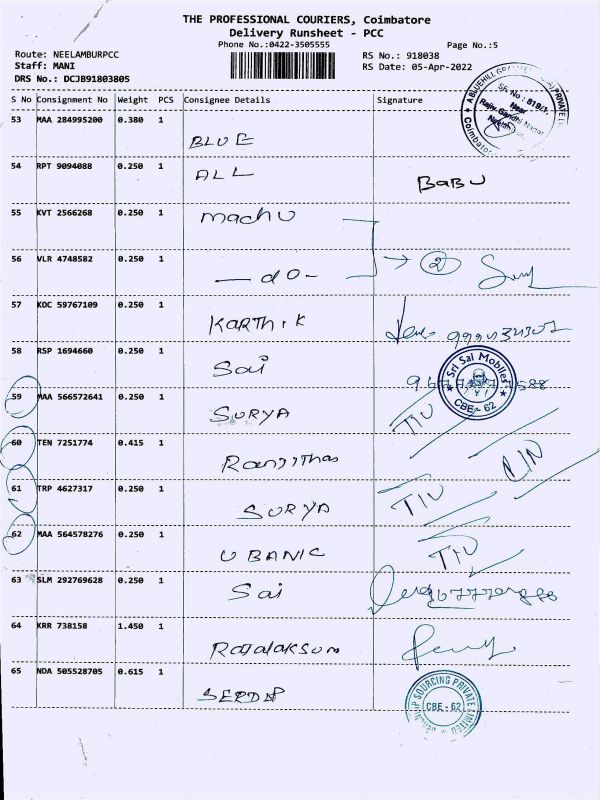 THE PROFESSIONAL COURIERS, Coimbatore
Delivery Runsheet - PCC
Phone No.:0422-3505555
Page No.:5
Route: NEELAMBURPCC
Staff: MANI
DRS No.: DCJB91803805
RS No.: 918038
RS Date: 05-Apr-2022
S No Consignment No Weight PCS Consignee Details Signature
53 MAA 284995200 0.380 1 BLUE
54 RPT 9094088 0.250 1 ALL BABU
55 KVT 2566268 0.250 1 Machu
56 VLR 4748582 0.250 1 — do — → 2
57 KOC 59767109 0.250 1 KARTHIK
58 RSP 1694660 0.250 1 Sai
Sri Sai Mobiles
CBE - 62
59 MAA 566572641 0.250 1 SURYA TIU
60 TEN 7251774 0.415 1 Ranjithas
61 TRP 4627317 0.250 1 SURYA TIU
62 MAA 564578276 0.250 1 UBANIC TIU
63 SLM 292769628 0.250 1 Sai
64 KRR 738158 1.450 1
65 NDA 505528705 0.615 1
SOURCING PRIVATE LIMITED
CBE - 62